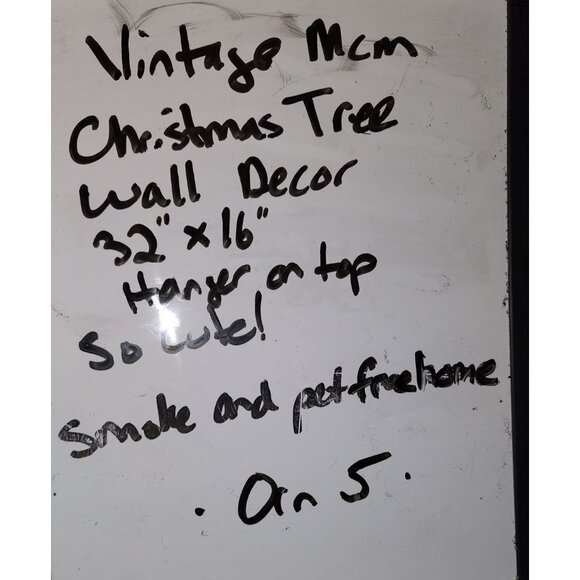 Vintage Mcm
Christmas Tree
Wall Decor
32" x 16"
Hanger on top
So cute!
smoke and pet free home
. Orn 5 .